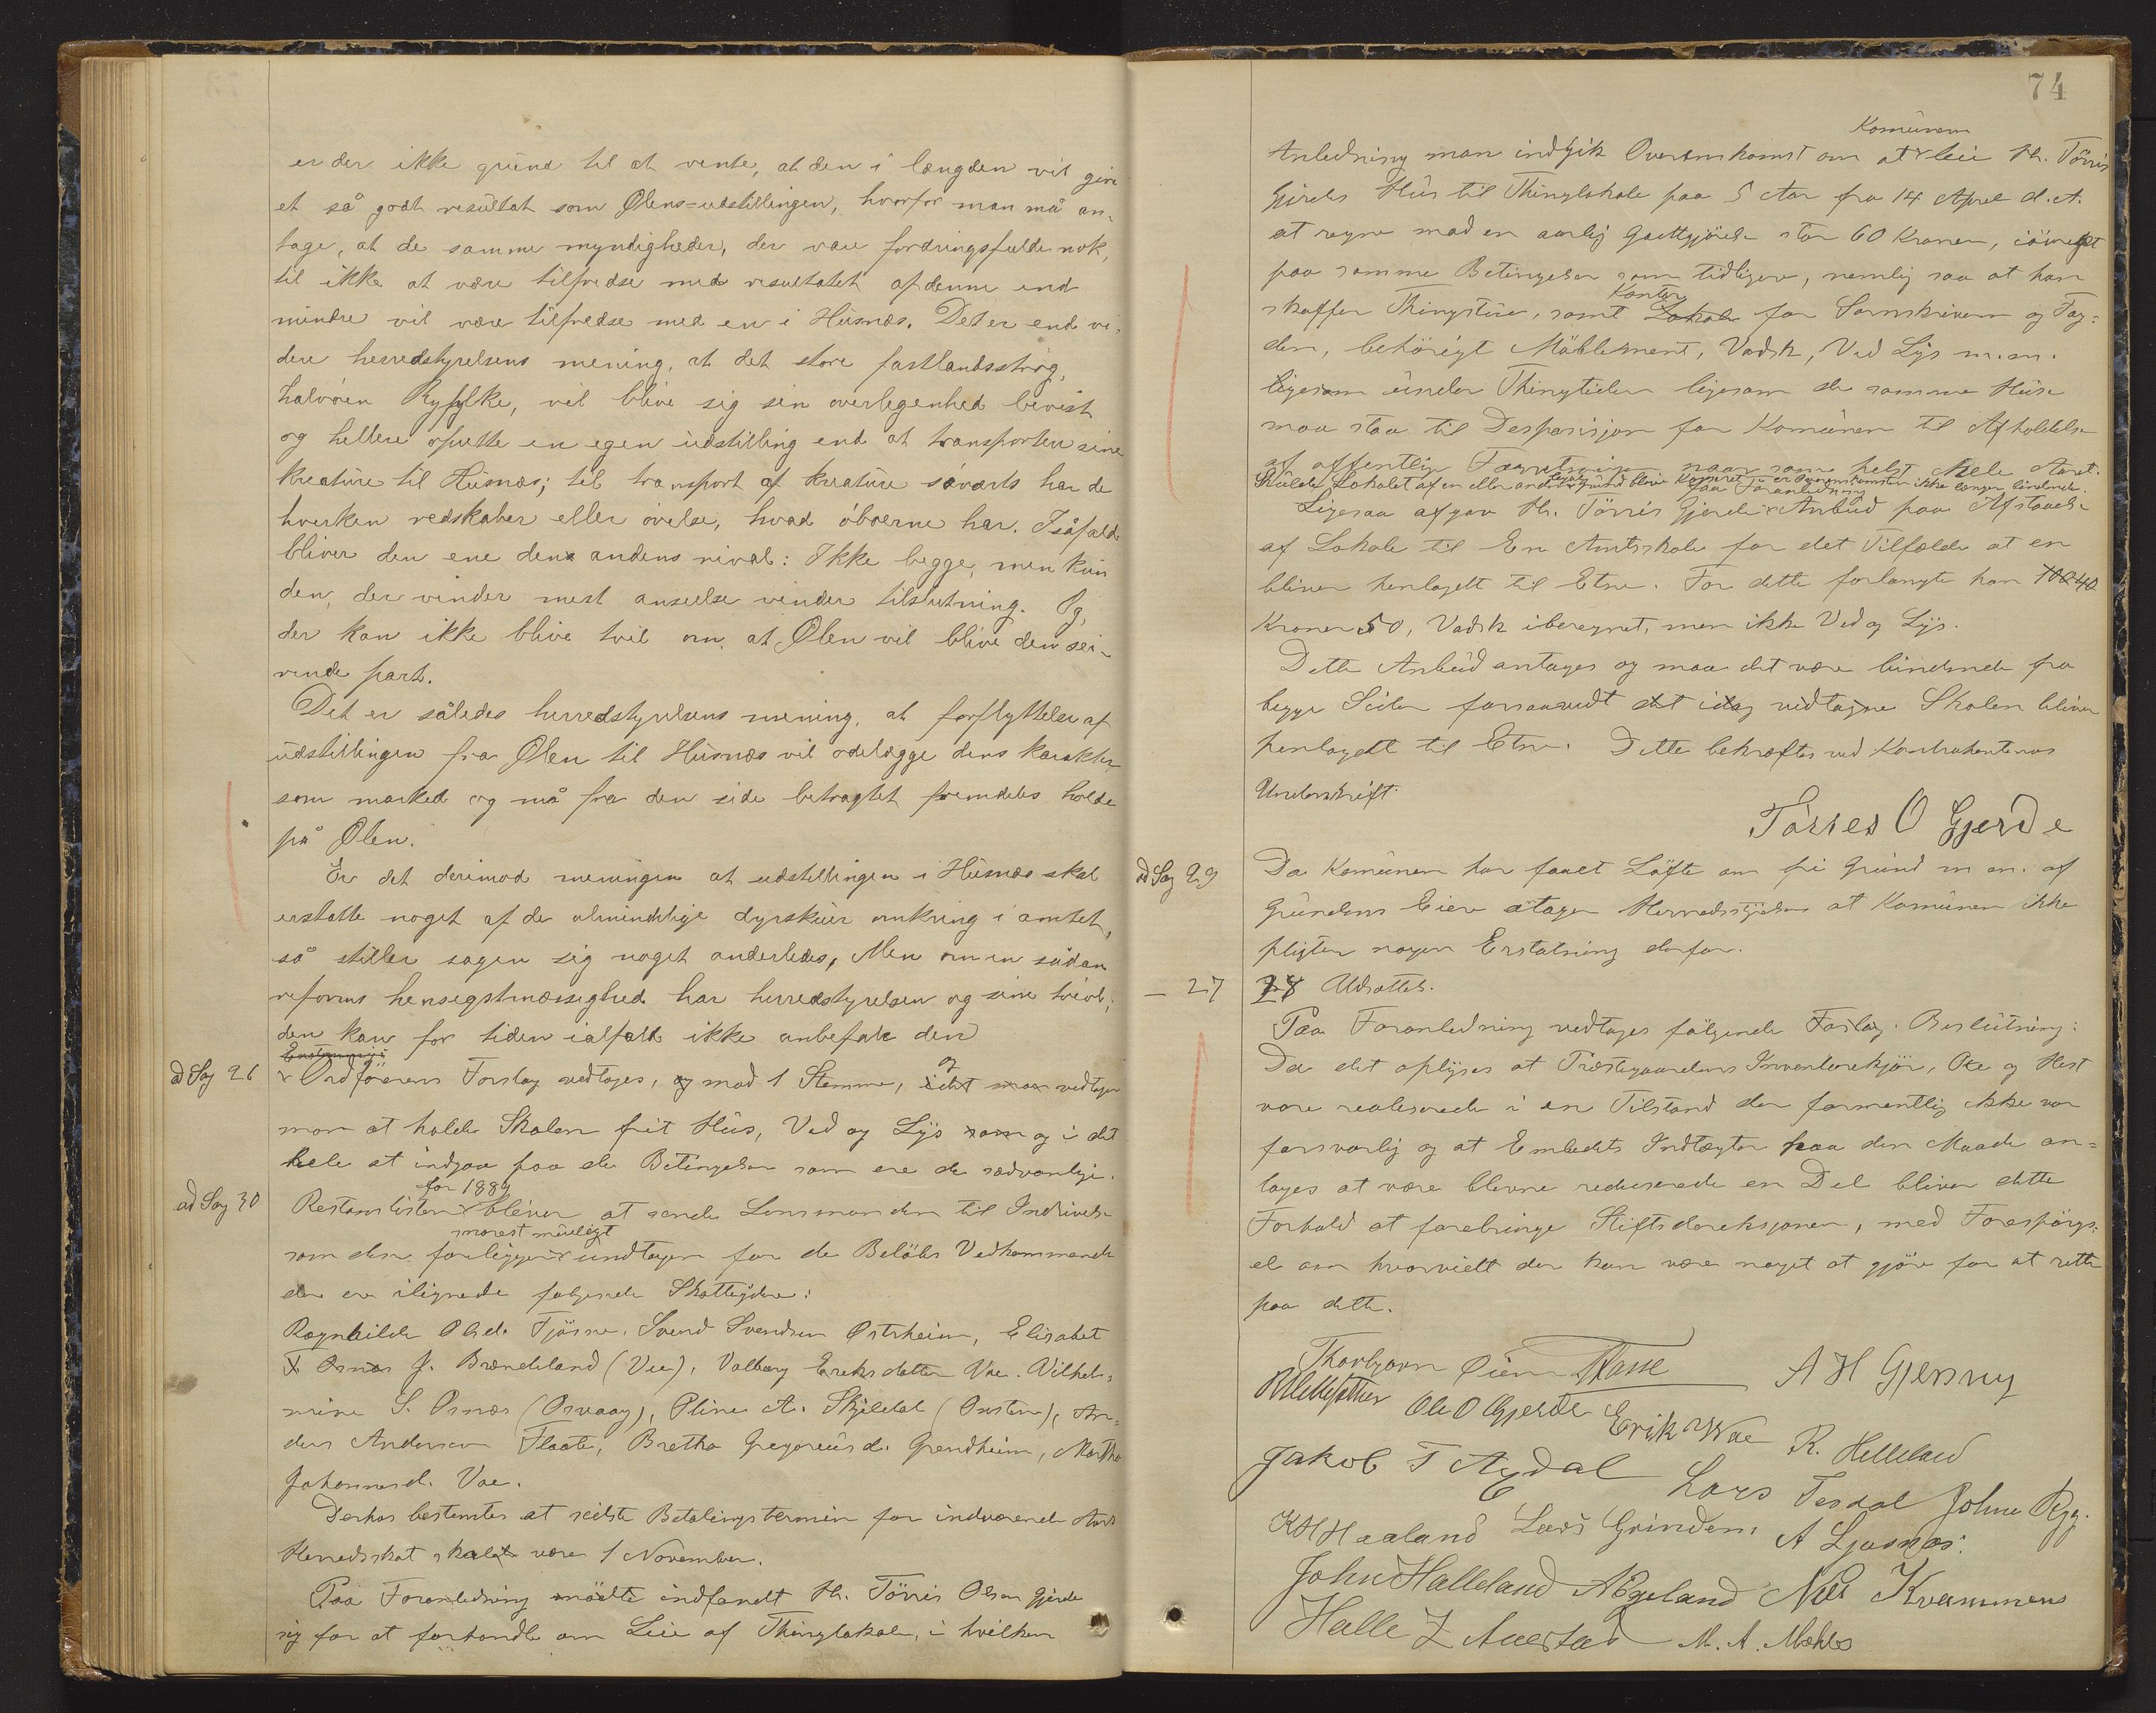 er der ikke grund til at vente, at den i længden vil give
et så godt resultat som Ølens-udstillingen, hvorfor man må an-
tage, at de samme myndigheder, der vare fordringsfulde nok,
til ikke at være tilfredse med resultatet af denne end
mindre vil være tilfredse med en i Husnæs. Det er end vi-
dere herredstyrelsens mening, at det store fastlandsstrøg,
halvøen Ryfylke, vil blive sig sin overlegenhed bevist
og hellere oprette en egen udstilling end at transportere sine
kreature til Husnæs; til transport af kreature søværts har de
hverken redskaber eller øvelse, hvad øboerne har. Isåfald
bliver den ene den andens rival: Ikke begge, men kun
den, der vinder mest anseelse vinder tilslutning. Og,
der kan ikke blive tvil om, at Ølen vil blive den sei-
rende part.
Det er således herredstyrelsens mening, at forflyttelse af
udstillingen fra Ølen til Husnæs vil ødelægge dens karakter
som marked og må fra den side betragtet fremdeles holde
på Ølen.
Er det derimod meningen at udstillingen i Husnæs skal
erstatte noget af de almindelige dyrskuer omkring i amtet,
så stiller sagen sig noget anderledes, Men om en sådan
reforms hensigtsmæssighed har herredstyrelsen og sine tvivl;
den kan for tiden ialfald ikke anbefale den
ad Sag 26 Enstemmigt
Ordførerens Forslag vedtages, og mod 1 Stemme, idet man og vedtager
man at holde Skolen frit Hus, Ved og Lys som og i det
hele at indgaa paa de Betingelser som ere de sædvanlige.
ad Sag 30 Restanslisten for 1889 bliver at sende Lensmanden til Indrivelse
snarest muligt
som den foreligger undtagen for de Beløbs Vedkommende
der er ilignede følgende Skatteydere:
Ragnhilde Olsd. Tjösne, Svend Svendsen Østrheim, Elisabet
T Osnæs J. Brændeland (Vee), Valborg Eriksdatter Vae. Vilhel-
mine S. Osnæs (Osvaag), Oline A. Skjeldal (Austre), An-
ders Andersen Flaate, Bretha Gregoriusd. Grendheim, Martha
Johannesd. Vae.
Derhos bestemtes at sidste Betalingstermin for indværende Aars
Herredsskat skalat være 1 November.
Paa Foranledning mødte indfandt Hr. Törris Olsen Gjerde
sig for at forhandle om Leie af Thinglokale, i hvilken
74
Komunen
Anledning man indgik Overenskomst om at leie Hr. Törris
Gjerdes Hus til Thinglokale paa 5 Aar fra 14 April d. A.
at regne mod en aarlig Godtgjörelse stor 60 Kroner, iövrigt
paa samme Betingelser som tidligere, nemlig saa at han
Kontor
skaffer Thingstue, samt Lokale for Sorenskriveren og Fog-
den, behörigt Möblement, Vadsk, Ved Lys m. m.
ligesom under Thingtiden ligesom de samme Huse
maa staa til Desposisjon for Komunen til Afholdelse
af offentlig Forretninger naar som helst hele Aaret.
Skulde Lokalet af en eller anden Grund blive kasseret er Overenskomsten ikke længer bindende.
paa Foranledning
Ligesaa afgav Hr. Törris Gjerde Anbud paa Afstaaelse
af Lokale til En Amtsskole for det Tilfælde at en
bliver henlagdt til Etne. For dette forlangte han 100 40
Kroner 50, Vadsk iberegnet, men ikke Ved og Lys.
Dette Anbud antages og maa det være bindende fra
begge Sider forsaavidt det idag vedtagne Skolen bliver
henlagdt til Etne. Dette bekræftes ved Kontrahenternes
Underskrift.
Törres O Gjerde
ad Sag 29 Da Komunen har faaet Löfte om fri Grund m m. af
Grundens Eiere antager Herredsstyrelsen at Komunen ikke
pligter nogen Erstatning derfor.
— 27 28 Udsættes.
Paa Foranledning vedtages følgende Forslag. Beslutning:
Da det oplyses at Præstegaardens Inventariekjör, Oxe og Hest
vare realiserede i en Tilstand der formentlig ikke var
forsvarlig og at Embedets Indtægter paa den Maade an-
tages at være blevne reduserede en Del bliver dette
Forhold at forebringe Stiftsdireksjonen, med Forespörgs-
el om hvorvidt der kan være noget at gjöre for at rette
paa dette.
Thorbjørn Øien Tasse A H Gjerruy
Ole O Gjerde Erik Wae R. Helleland
Jakob T Agdal Lars Tesdal Johne Rygg.
K H Haaland Lars Grindem A Ljosnæs.
John Halleland A Egeland Nils Kvammens
Halle Z Auestad M. A. Mæhle